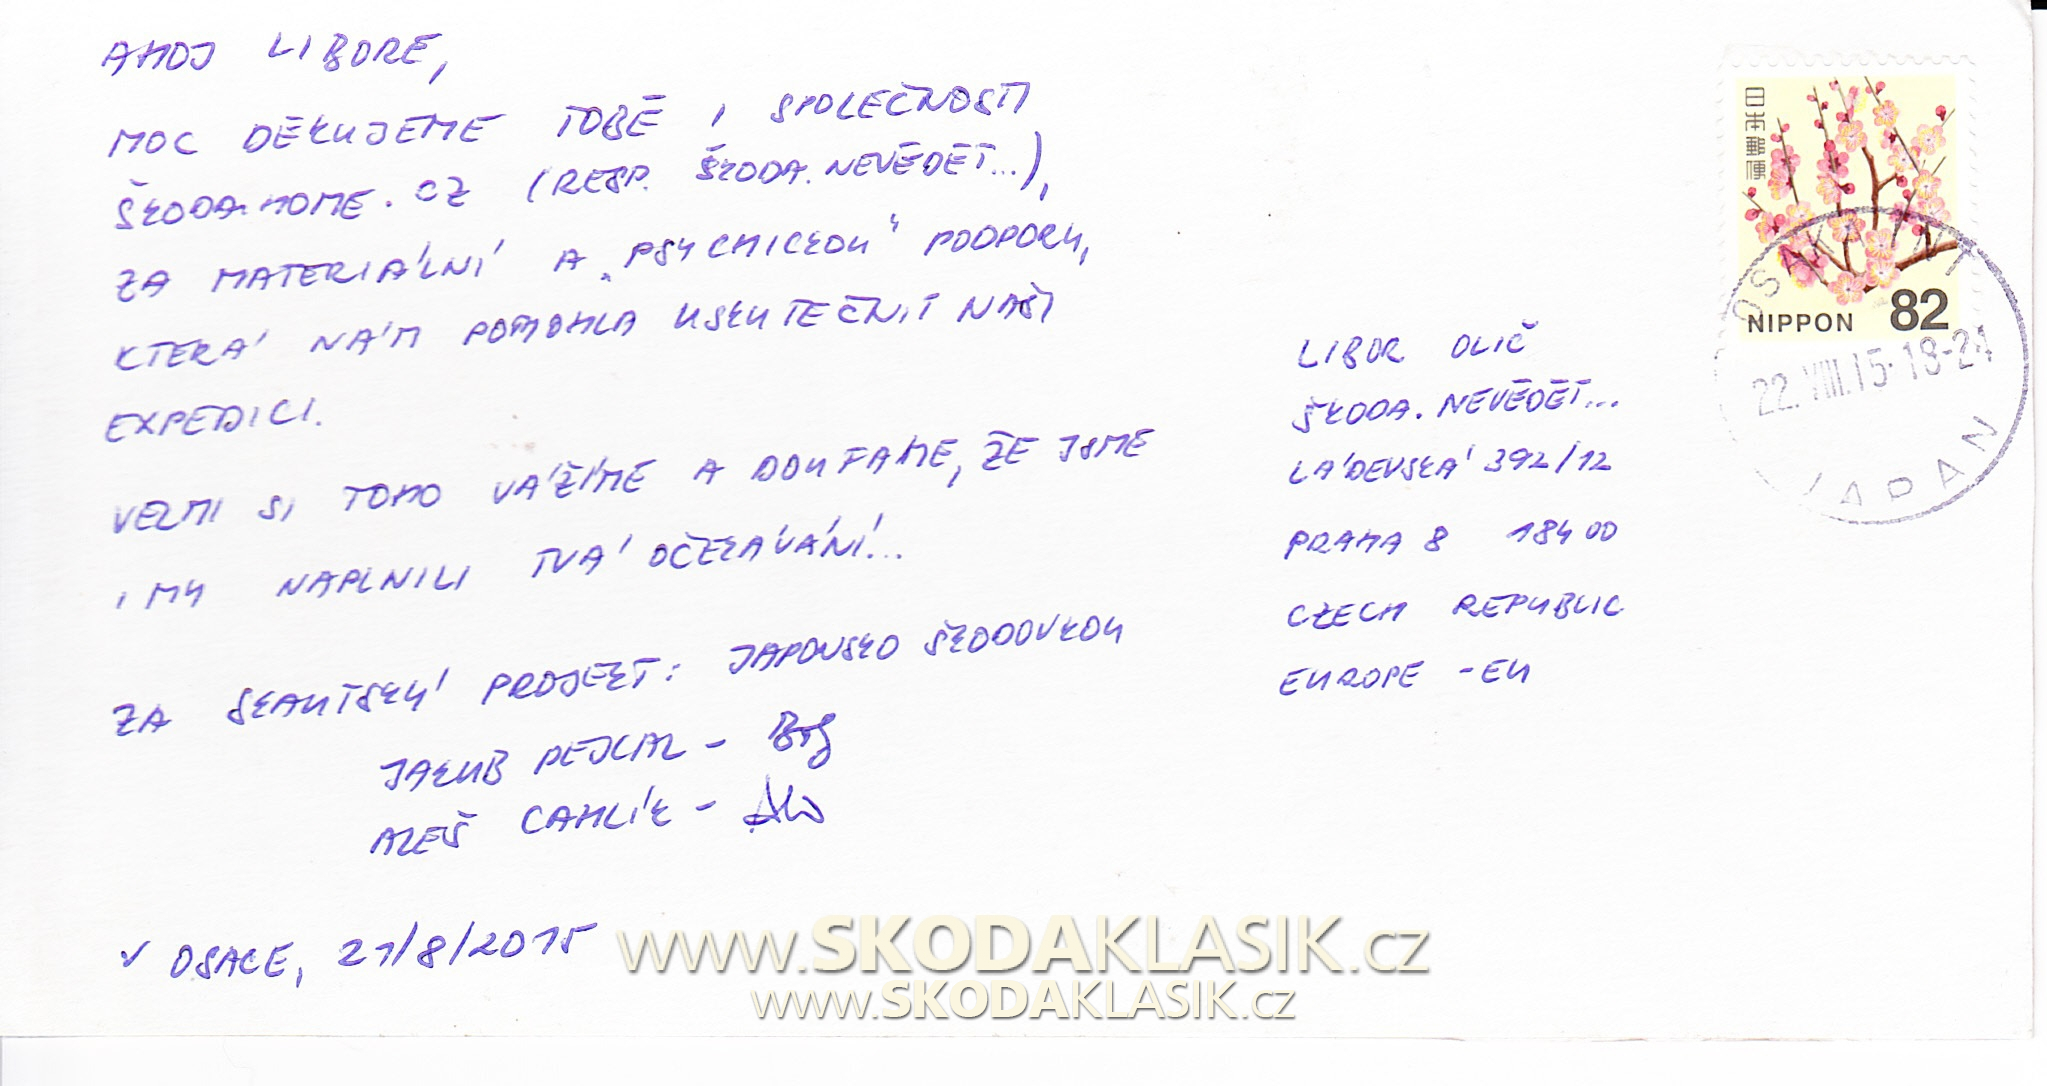 AHOJ LIBORE,
MOC DĚKUJEME TOBĚ I SPOLEČNOSTI
ŠKODAHOME.CZ (RESP. ŠKODA.NEVĚDĚT...),
ZA MATERIÁLNÍ A „PSYCHICKOU“ PODPORU,
KTERÁ NÁM POMOHLA USKUTEČNIT NAŠI
EXPEDICI.
VELMI SI TOHO VÁŽÍME A DOUFAME, ŽE JSME
I MY NAPLNILI TVÁ OČEKÁVÁNÍ!...
ZA SKAUTSKÝ PROJEKT: JAPONSKO ŠKODOVKOU
JAKUB PEJCAL -
ALEŠ CAHLÍK -
V OSACE, 21/8/2015
日本郵便
NIPPON 82
22.VIII.15.18-24
JAPAN
LIBOR OLIČ
ŠKODA.NEVĚDĚT...
LÁDEVSKÁ 392/12
PRAHA 8 184 00
CZECH REPUBLIC
EUROPE - EU
www.SKODAKLASIK.cz
www.SKODAKLASIK.cz